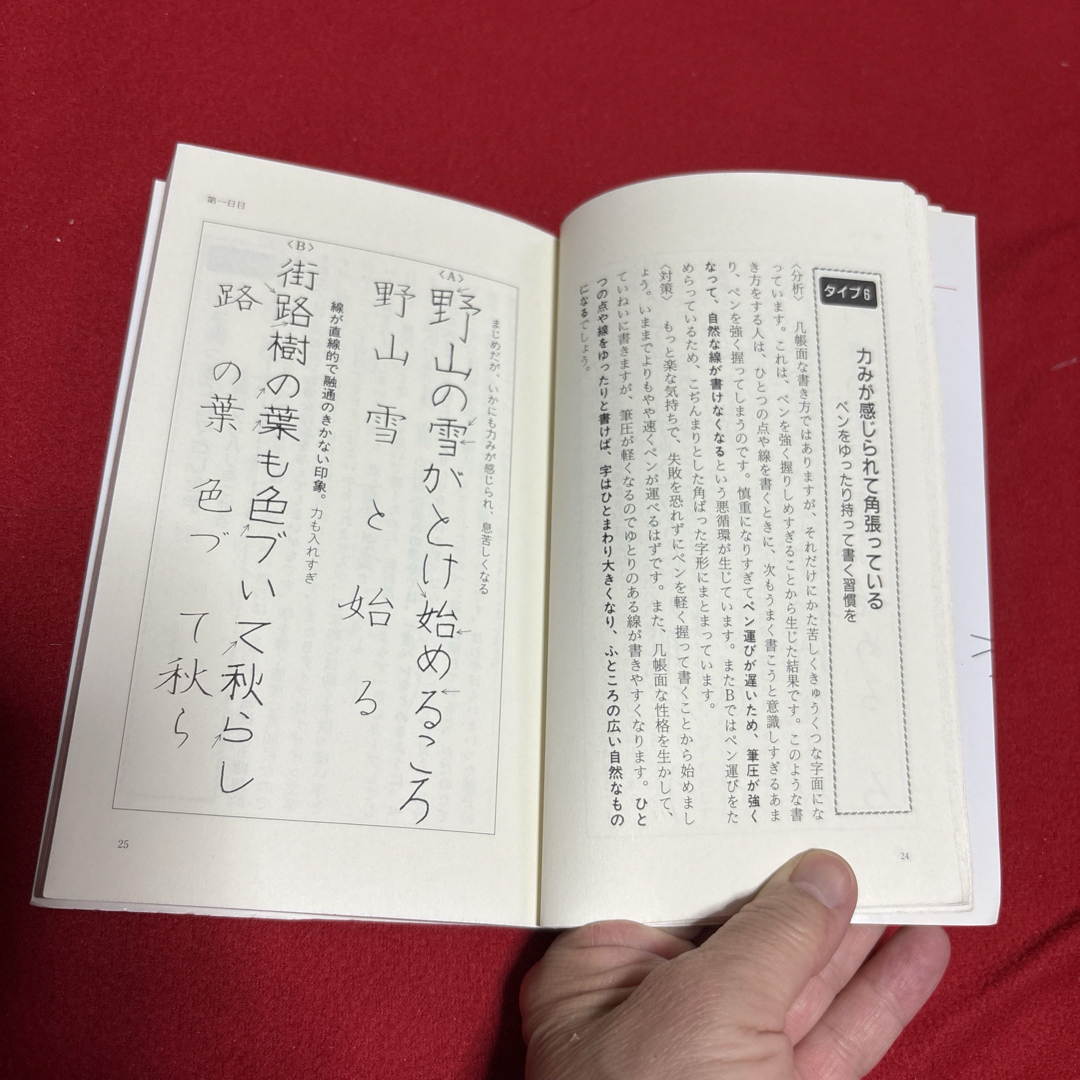 タイプ6
力みが感じられて角張っている
ペンをゆったり持って書く習慣を
〈分析〉 几帳面な書き方ではありますが、それだけにかた苦しくきゅうくつな字面にな
っています。これは、ペンを強く握りしめすぎることから生じた結果です。このような書
き方をする人は、ひとつの点や線を書くときに、次もうまく書こうと意識しすぎるあま
り、ペンを強く握ってしまうのです。慎重になりすぎてペン運びが遅いため、筆圧が強く
なって、自然な線が書けなくなるという悪循環が生じています。またBではペン運びをた
めらっているため、こぢんまりとした角ばった字形にまとまっています。
〈対策〉 もっと楽な気持ちで、失敗を恐れずにペンを軽く握って書くことから始めまし
ょう。いままでよりもやや速くペンが運べるはずです。また、几帳面な性格を生かして、
ていねいに書きますが、筆圧が軽くなるのでゆとりのある線が書きやすくなります。ひと
つの点や線をゆったりと書けば、字はひとまわり大きくなり、ふところの広い自然なもの
になるでしょう。
24
第一日目
まじめだが、いかにも力みが感じられ、息苦しくなる
〈A〉
野山の雪がとけ始めるころ
野山 雪 と 始 る
線が直線的で融通のきかない印象。力も入れすぎ
〈B〉
街路樹の葉も色づいて秋らし
路 の葉 色づ て秋ら
25